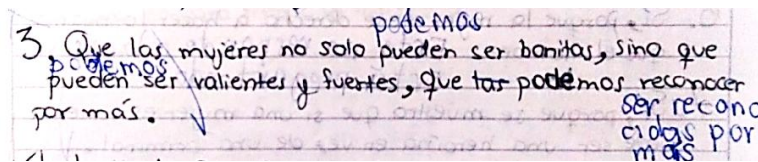 podemos
3. Que las mujeres no solo pueden ser bonitas, sino que
podemos
pueden ser valientes y fuertes, que podemos reconocer
por más.
ser recono
cidas por
más